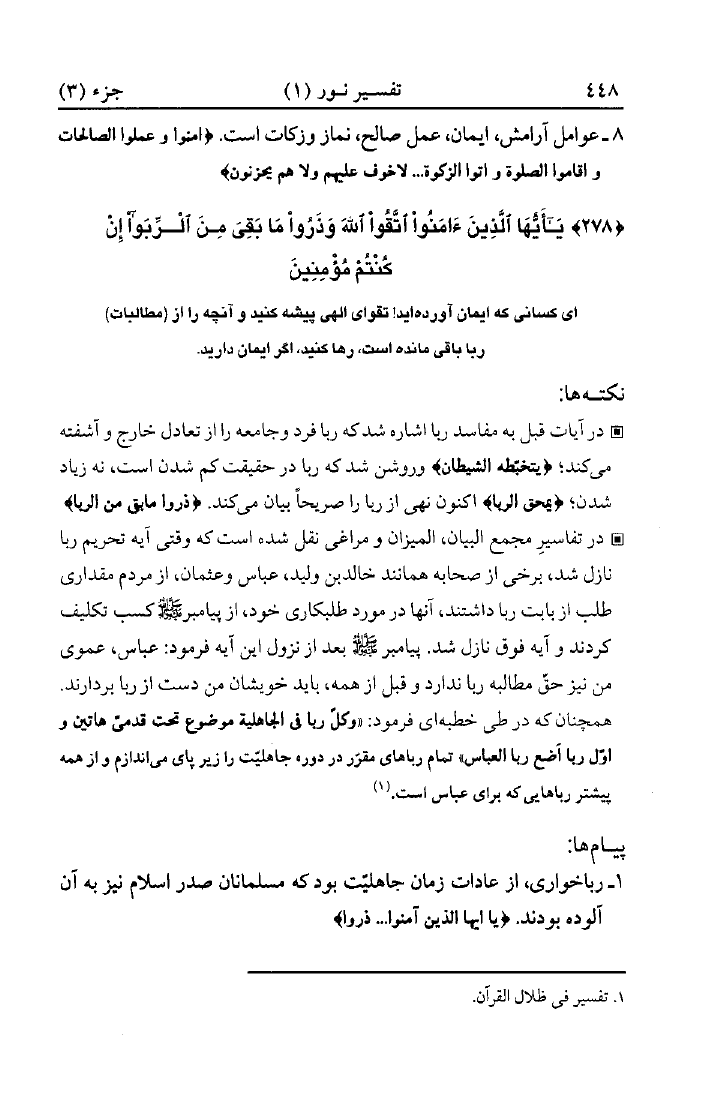 ٤٤٨ تفسیر نور (١) جزء (٣)
٨ـ عوامل آرامش، ایمان، عمل صالح، نماز وزکات است. ﴿امنوا و عملوا الصالحات
و اقاموا الصلوة و اتوا الزکوة... لاخوف علیهم ولا هم یحزنون﴾
﴿٢٧٨﴾ يَـٰٓأَيُّهَا ٱلَّذِينَ ءَامَنُواْ ٱتَّقُواْ ٱللَّهَ وَذَرُواْ مَا بَقِىَ مِـنَ ٱلْـرِّبَوٰٓاْ إِنْ
كُنْتُمْ مُؤْمِنِينَ
ای کسانی که ایمان آورده‌اید! تقوای الهی پیشه کنید و آنچه را از (مطالبات)
ربا باقی مانده است، رها کنید، اگر ایمان دارید.
نکتـه‌ها:
▣ در آیات قبل به مفاسد ربا اشاره شد که ربا فرد وجامعه را از تعادل خارج و آشفته
می‌کند؛ ﴿یتخبّطه الشیطان﴾ وروشن شد که ربا در حقیقت کم شدن است، نه زیاد
شدن؛ ﴿یمحق الربا﴾ اکنون نهی از ربا را صریحاً بیان می‌کند. ﴿ذروا مابق من الربا﴾
▣ در تفاسیرِ مجمع البیان، المیزان و مراغی نقل شده است که وقتی آیه تحریم ربا
نازل شد، برخی از صحابه همانند خالدبن ولید، عباس وعثمان، از مردم مقداری
طلب از بابت ربا داشتند، آنها در مورد طلبکاری خود، از پیامبر ﷺ کسب تکلیف
کردند و آیه فوق نازل شد. پیامبر ﷺ بعد از نزول این آیه فرمود: عباس، عموی
من نیز حقّ مطالبه ربا ندارد و قبل از همه، باید خویشان من دست از ربا بردارند.
همچنان که در طی خطبه‌ای فرمود: «وکلّ ربا فی الجاهلیة موضوع تحت قدمیّ هاتین و
اوّل ربا أضع ربا العباس» تمام رباهای مقرّر در دوره جاهلیّت را زیر پای می‌اندازم و از همه
پیشتر رباهایی که برای عباس است.(١)
پیـام‌ها:
١ـ رباخواری، از عادات زمان جاهلیّت بود که مسلمانان صدر اسلام نیز به آن
آلوده بودند. ﴿یا ایها الذین آمنوا... ذروا﴾
١. تفسیر فی ظلال القرآن.